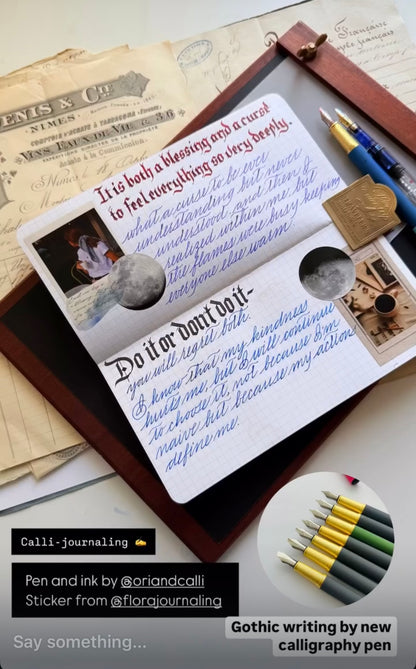 Française
DENIS & Cie
NIMES
VINS, EAUX DE VIE & 3/6
It is both a blessing and a curse
to feel everything so very deeply.
what a curse to be ever
understanding but never
understood. and then I
realized within me, but
the flames were busy keeping
everyone else warm
Do it or dont do it-
you will regret both.
I know that my kindness
hurts me, but I will continue
to choose it, not because I'm
naive but because my actions
define me.
Calli-journaling ✍️
Pen and ink by @oriandcalli
Sticker from @florajournaling
Gothic writing by new
calligraphy pen
Say something...